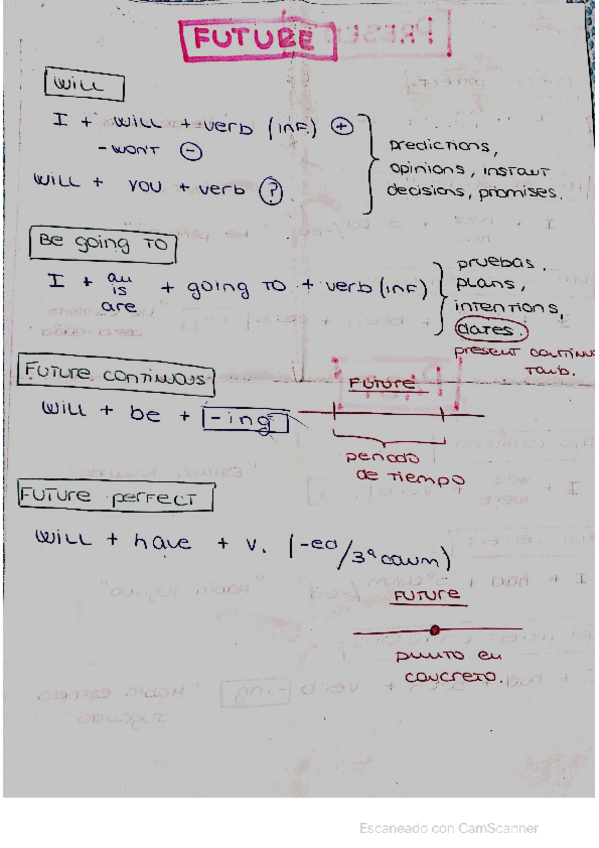 FUTURE
WILL
I + will + verb (inf.) +
- won't -
predictions,
opinions, instant
decisions, promises.
will + you + verb ?
Be going to
I + au
is
are
+ going to + verb (inf)
pruebas.
plans,
intentions,
dates.
present continuo
tamb.
Future continuous
will + be + -ing
FUTURE
periodo
de tiempo
Future perfect
will + have + v. (-ed/3ª coum)
FUTURE
punto en
concreto.
Escaneado con CamScanner